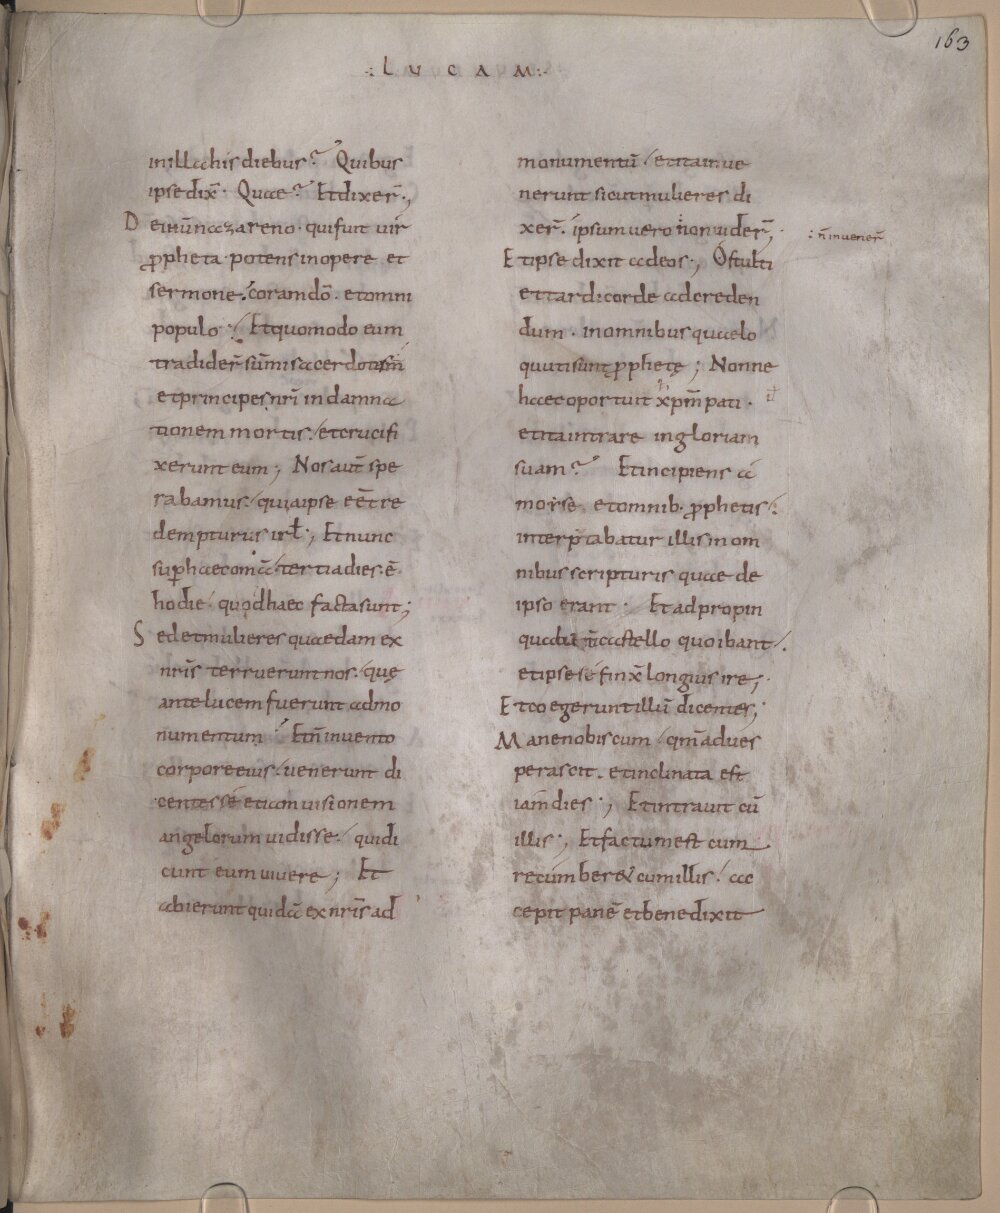 163
LUCAM
in illa his diebus? Quibus
ipse dix̄. Quae? Et dixer̄.,
De ih̄u nazareno. qui fuit vir
ꝓpheta. potens in opere et
sermone. coram dō. et omni
populo. Et quomodo eum
tradider̄ sūmi sacerdotū
et principes nr̄i in damna
tionem mortis. et crucifi
xerunt eum; Nos aut̄ spe
rabamus. quia ipse eēt re
dempturus irł., Et nunc
sup̄ haec om̄a. tertia dies. ē
hodie. quod haec facta sunt;
Sed et mulieres quaedam ex
nr̄is terruerunt nos. quę
ante lucem fuerunt ad mo
numentum. Et n̄ invento
corpore eius. venerunt di
centes sé etiam visionem
angelorum vidisse. qui di
cunt eum vivere; Et
abierunt quidā ex nr̄is ad
monumentū. et ita inve
nerunt sicut mulieres di
xer̄. ipsum vero non vider̄;
: n̄ invener̄
Et ipse dixit ad eos., O stulti
et tardi corde ad creden
dum. in omnibus quae lo
quuti sunt ꝓphetę; Nonne
haec oportuit xp̄m pati.
et ita intrare in gloriam
suam? Et incipiens a
moyse. et omnib. ꝓphetis.
interp̄tabatur illis in om
nibus scripturis quae de
ipso erant. Et adpropin
quabū castello quo ibant.
et ipse sé finx̄ longius ire;
Et coegerunt illū dicentes;
Mane nobiscum. qm̄ adves
perascit. et inclinata est
iam dies., Et intravit cū
illis., Et factum est cum
recumberet cum illis. ac
cepit panē et benedixit